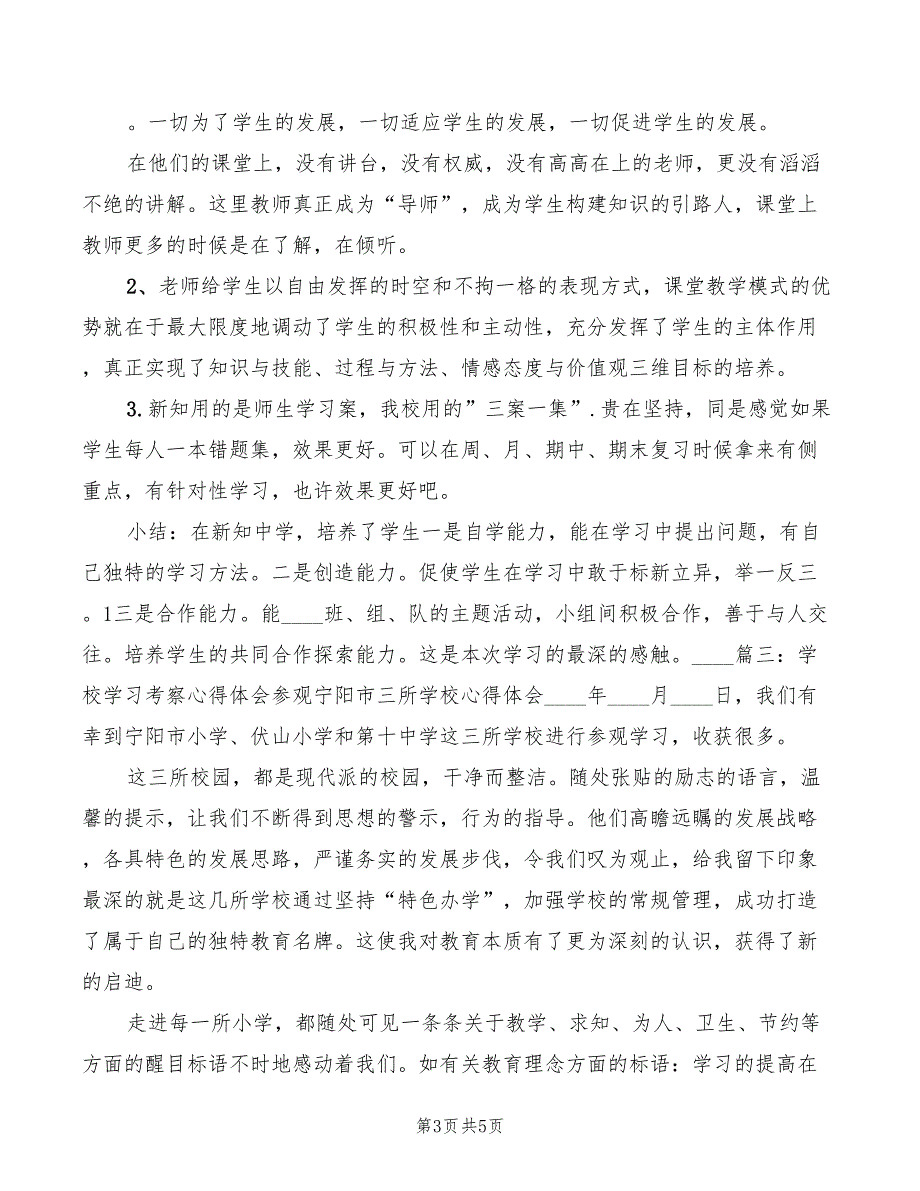 。一切为了学生的发展，一切适应学生的发展，一切促进学生的发展。
在他们的课堂上，没有讲台，没有权威，没有高高在上的老师，更没有滔滔
不绝的讲解。这里教师真正成为“导师”，成为学生构建知识的引路人，课堂上
教师更多的时候是在了解，在倾听。
2、老师给学生以自由发挥的时空和不拘一格的表现方式，课堂教学模式的优
势就在于最大限度地调动了学生的积极性和主动性，充分发挥了学生的主体作用
，真正实现了知识与技能、过程与方法、情感态度与价值观三维目标的培养。
3.新知用的是师生学习案，我校用的”三案一集”.贵在坚持，同是感觉如果
学生每人一本错题集，效果更好。可以在周、月、期中、期末复习时候拿来有侧
重点，有针对性学习，也许效果更好吧。
小结：在新知中学，培养了学生一是自学能力，能在学习中提出问题，有自
己独特的学习方法。二是创造能力。促使学生在学习中敢于标新立异，举一反三
。1三是合作能力。能____班、组、队的主题活动，小组间积极合作，善于与人交
往。培养学生的共同合作探索能力。这是本次学习的最深的感触。____篇三：学
校学习考察心得体会参观宁阳市三所学校心得体会____年____月____日，我们有
幸到宁阳市小学、伏山小学和第十中学这三所学校进行参观学习，收获很多。
这三所校园，都是现代派的校园，干净而整洁。随处张贴的励志的语言，温
馨的提示，让我们不断得到思想的警示，行为的指导。他们高瞻远瞩的发展战略
，各具特色的发展思路，严谨务实的发展步伐，令我们叹为观止，给我留下印象
最深的就是这几所学校通过坚持“特色办学”，加强学校的常规管理，成功打造
了属于自己的独特教育名牌。这使我对教育本质有了更为深刻的认识，获得了新
的启迪。
走进每一所小学，都随处可见一条条关于教学、求知、为人、卫生、节约等
方面的醒目标语不时地感动着我们。如有关教育理念方面的标语：学习的提高在
第3页 共5页